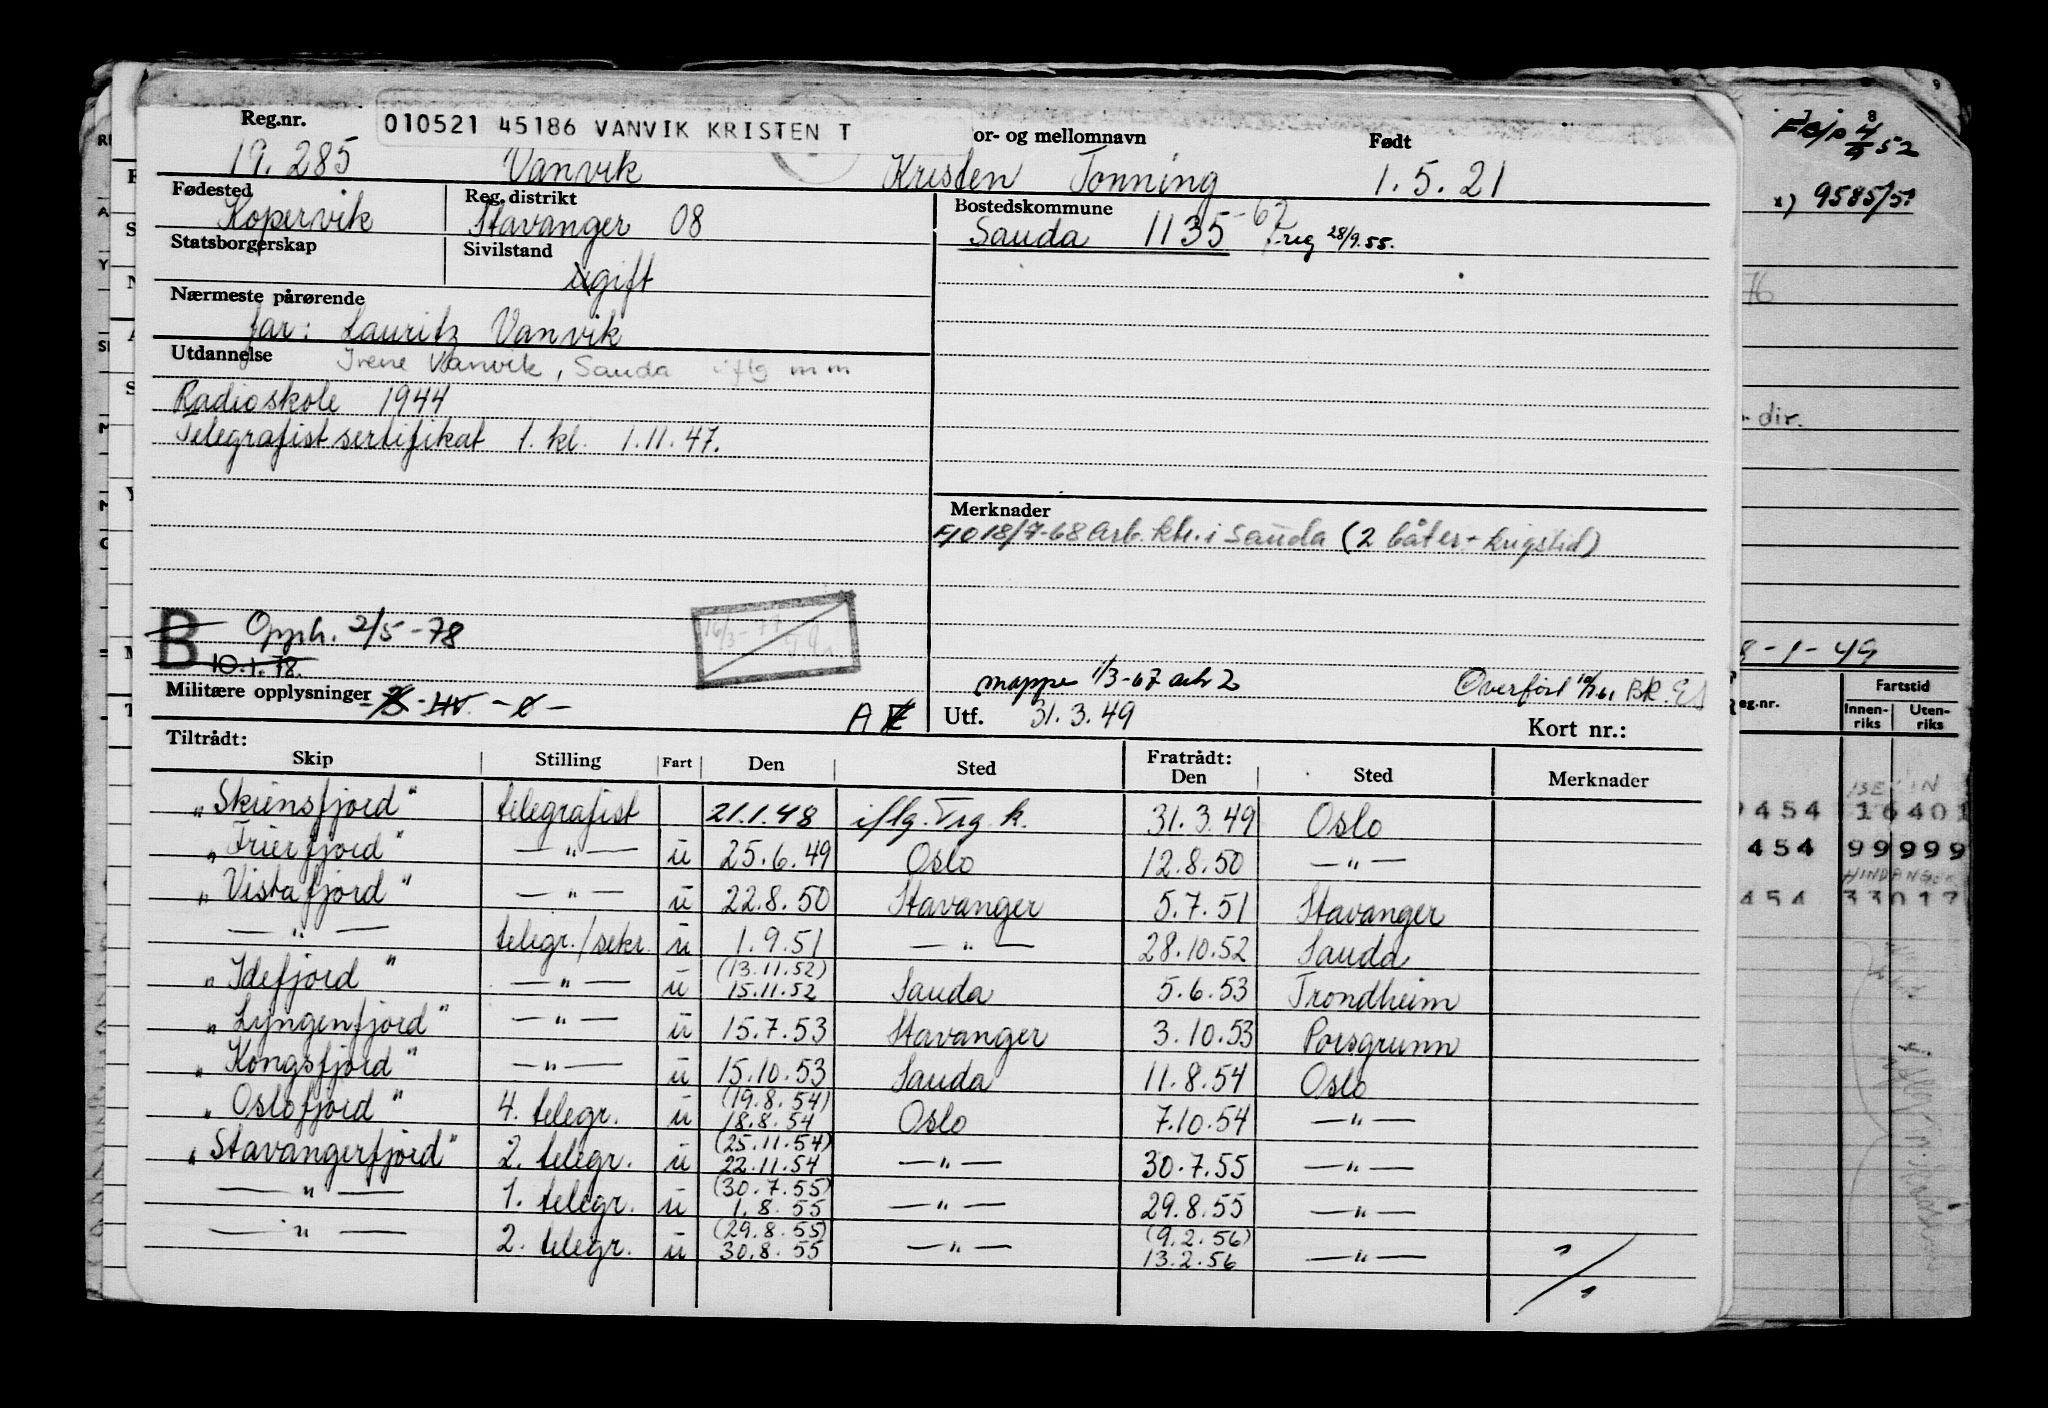 010521 45186 VANVIK KRISTEN T
Reg.nr. or- og mellomnavn Født
19.285 Vanvik Kristen Tonning 1.5.21
Fødested Reg. distrikt Bostedskommune
Kopervik Stavanger 08 Sauda 1135-62 28/9.55.
Statsborgerskap Sivilstand
ugift
Nærmeste pårørende
far: Lauritz Vanvik
Utdannelse Irene Vanvik, Sauda iflg mm
Radioskole 1944
Telegrafistsertifikat 1. kl. 1.11.47.
Merknader
F/O 18/7-68 arb. ktr. i Sauda (2 båter - krigstid)
B Opph. 2/5-78
10.1.78.
16/3-77
Militære opplysninger
mappe 1/3-67 Overført
Utf. 31.3.49 Kort nr.:
Tiltrådt: Fratrådt:
Skip Stilling Fart Den Sted Den Sted Merknader
"Skiensfjord" telegrafist 21.1.48 iflg. Trg. k. 31.3.49 Oslo
"Frierfjord" — " — u 25.6.49 Oslo 12.8.50 — " —
"Vistafjord" — " — u 22.8.50 Stavanger 5.7.51 Stavanger
— " — telegr./sekr. u 1.9.51 — " — 28.10.52 Sauda
"Idefjord" — " — u (13.11.52) 15.11.52 Sauda 5.6.53 Trondheim
"Lyngenfjord" — " — u 15.7.53 Stavanger 3.10.53 Porsgrunn
"Kongsfjord" — " — u 15.10.53 Sauda 11.8.54 Oslo
"Oslofjord" 4. telegr. u (19.8.54) 18.8.54 Oslo 7.10.54 — " —
"Stavangerfjord" 2. telegr. u (25.11.54) 22.11.54 — " — 30.7.55 — " —
— " — 1. telegr. u (30.7.55) 1.8.55 — " — 29.8.55 — " —
— " — 2. telegr. u (29.8.55) 30.8.55 — " — (9.2.56) 13.2.56 — " —
dir.
8-1-49
eg.nr. Fartstid
Innen-riks Uten-riks
454 1640
454 99999
454 33017